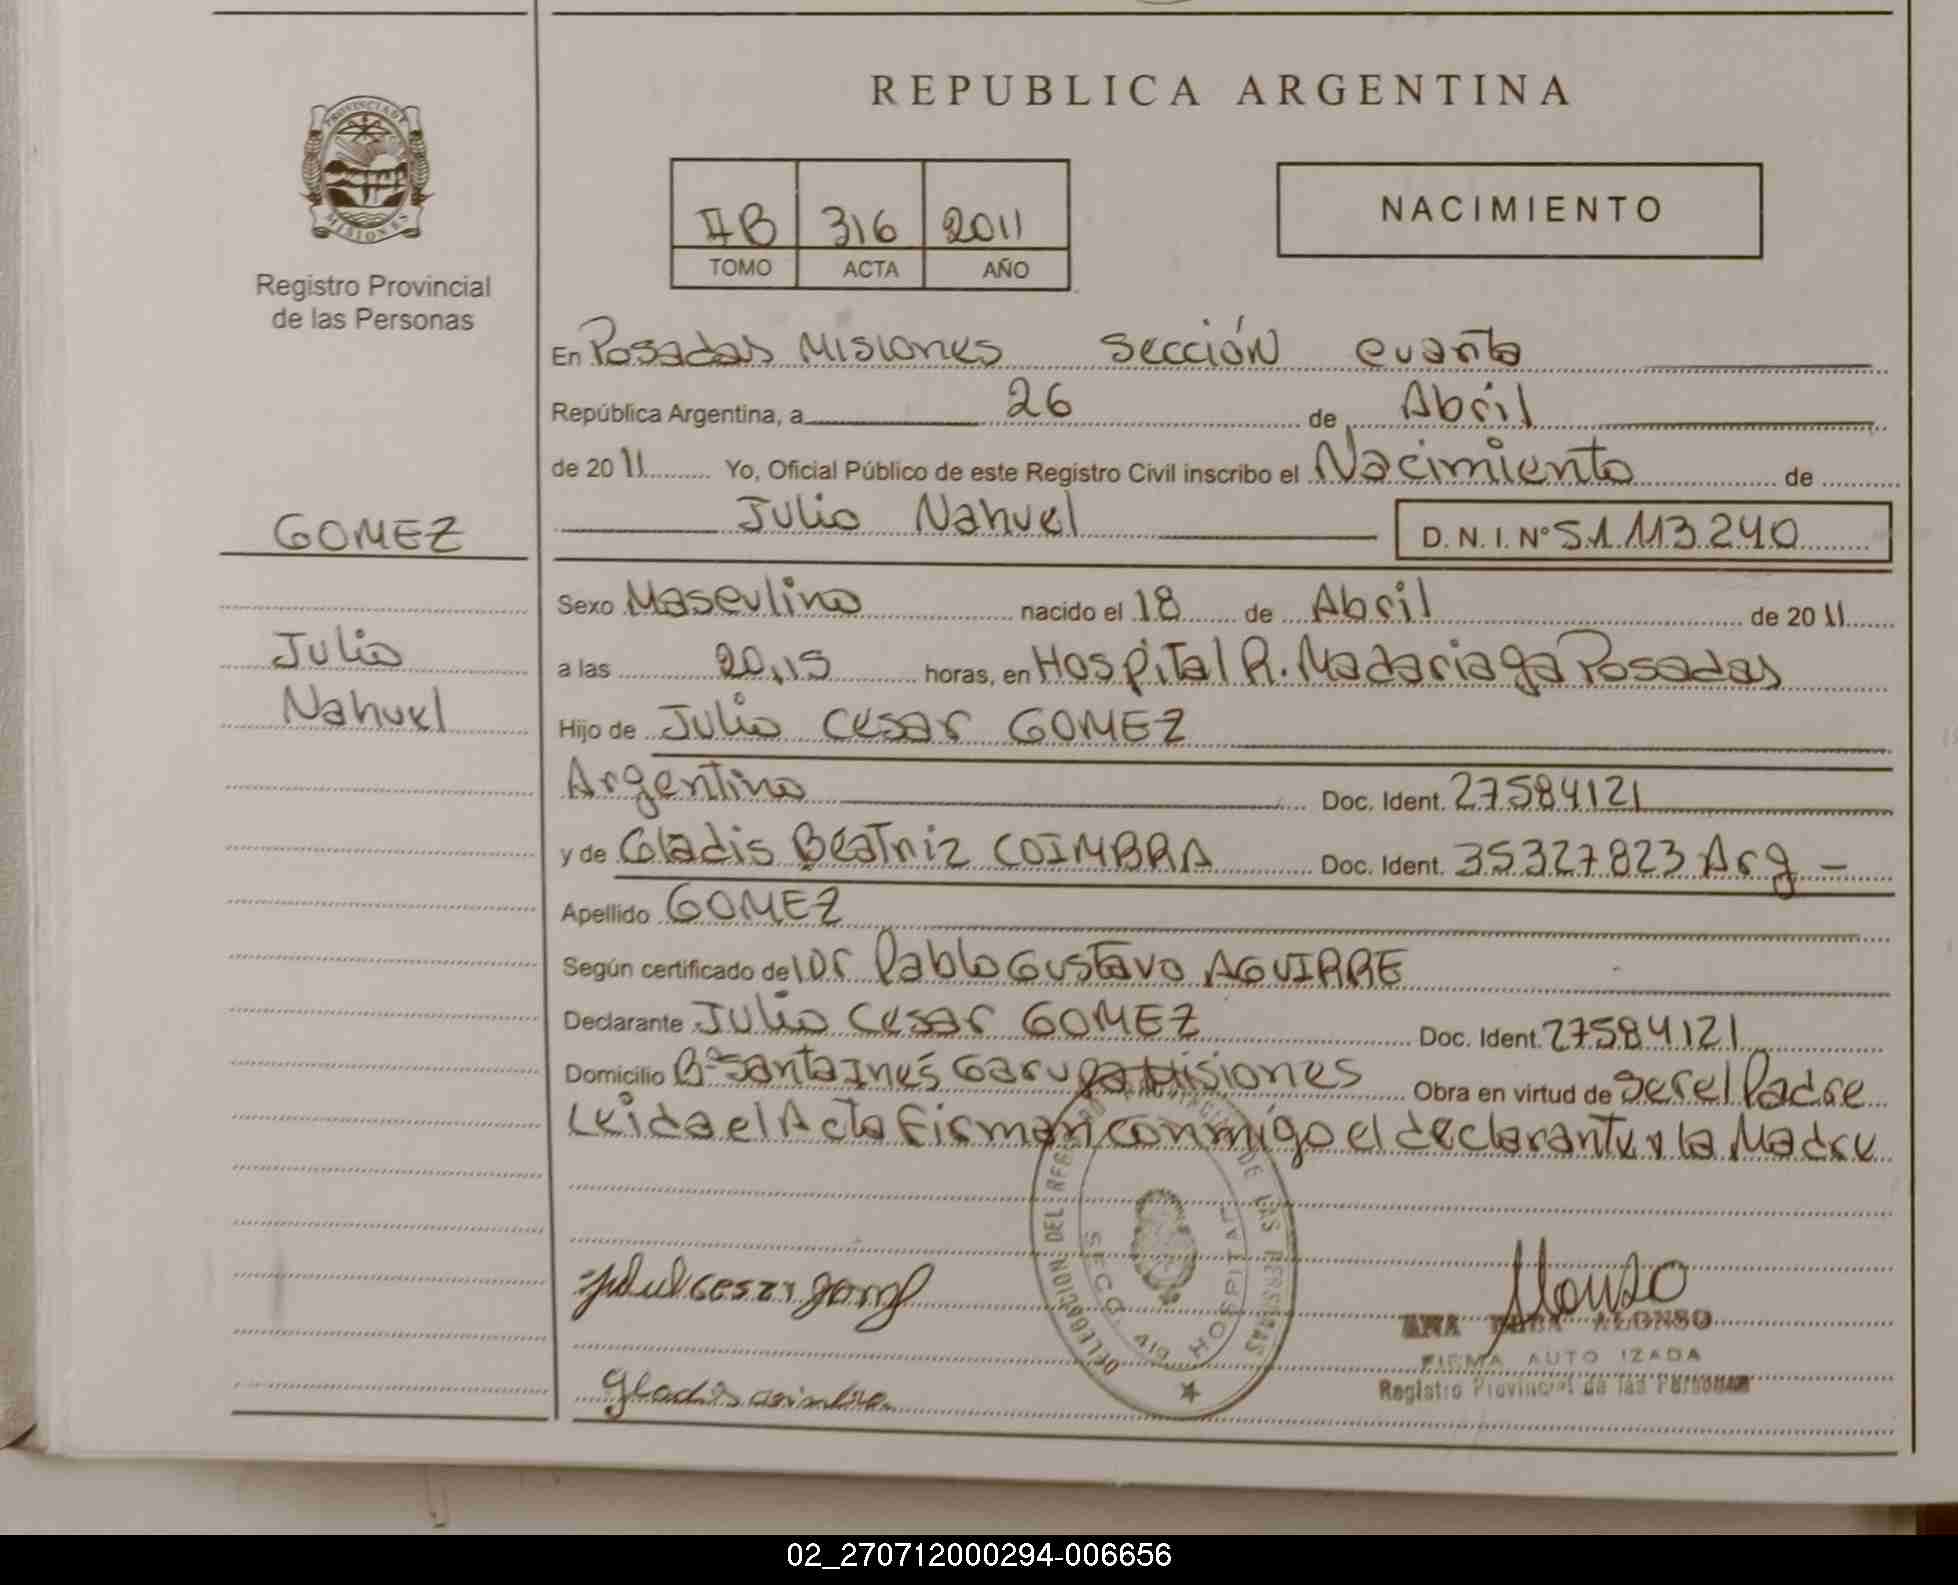 REPUBLICA ARGENTINA
PROVINCIA DE
MISIONES
Registro Provincial
de las Personas
IIB 316 2011
TOMO ACTA AÑO
NACIMIENTO
En Posadas Misiones sección cuarta
República Argentina, a 26 de Abril
de 2011 Yo, Oficial Público de este Registro Civil inscribo el Nacimiento de
GOMEZ
Julio Nahuel D.N.I. Nº 51.113.240
Sexo Masculino nacido el 18 de Abril de 2011
Julio
Nahuel
a las 20,15 horas, en Hospital R. Madariaga Posadas
Hijo de Julio Cesar GOMEZ
Argentino Doc. Ident. 27584121
y de Gladis Beatriz COIMBRA Doc. Ident. 35327823 Arg –
Apellido GOMEZ
Según certificado del Dr Pablo Gustavo AGUIRRE
Declarante Julio Cesar GOMEZ Doc. Ident. 27584121
Domicilio Bº Santa Inés Garupa Misiones Obra en virtud de ser el Padre
Leida el Acta firman conmigo el declarante y la Madre
DELEGACION DEL REGISTRO PROVINCIAL DE LAS PERSONAS
SECC. 4ta HOSPITAL
Julio cesar gomez
Alonso
ALONSO
FIRMA AUTO IZADA
Registro Provincial de las Personas
gladis coimbra
02_270712000294-006656